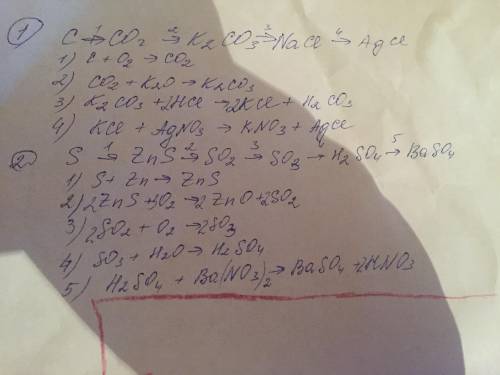 1) C →¹ CO₂ →² K₂CO₃ →³ NaCl →⁴ AgCl
1) C + O₂ → CO₂
2) CO₂ + K₂O → K₂CO₃
3) K₂CO₃ + 2HCl → 2KCl + H₂CO₃
4) KCl + AgNO₃ → KNO₃ + AgCl
2. S →¹ ZnS →² SO₂ →³ SO₃ →⁴ H₂SO₄ →⁵ BaSO₄
1) S + Zn → ZnS
2) 2ZnS + 3O₂ → 2ZnO + 2SO₂
3) 2SO₂ + O₂ → 2SO₃
4) SO₃ + H₂O → H₂SO₄
5) H₂SO₄ + Ba(NO₃)₂ → BaSO₄ + 2HNO₃